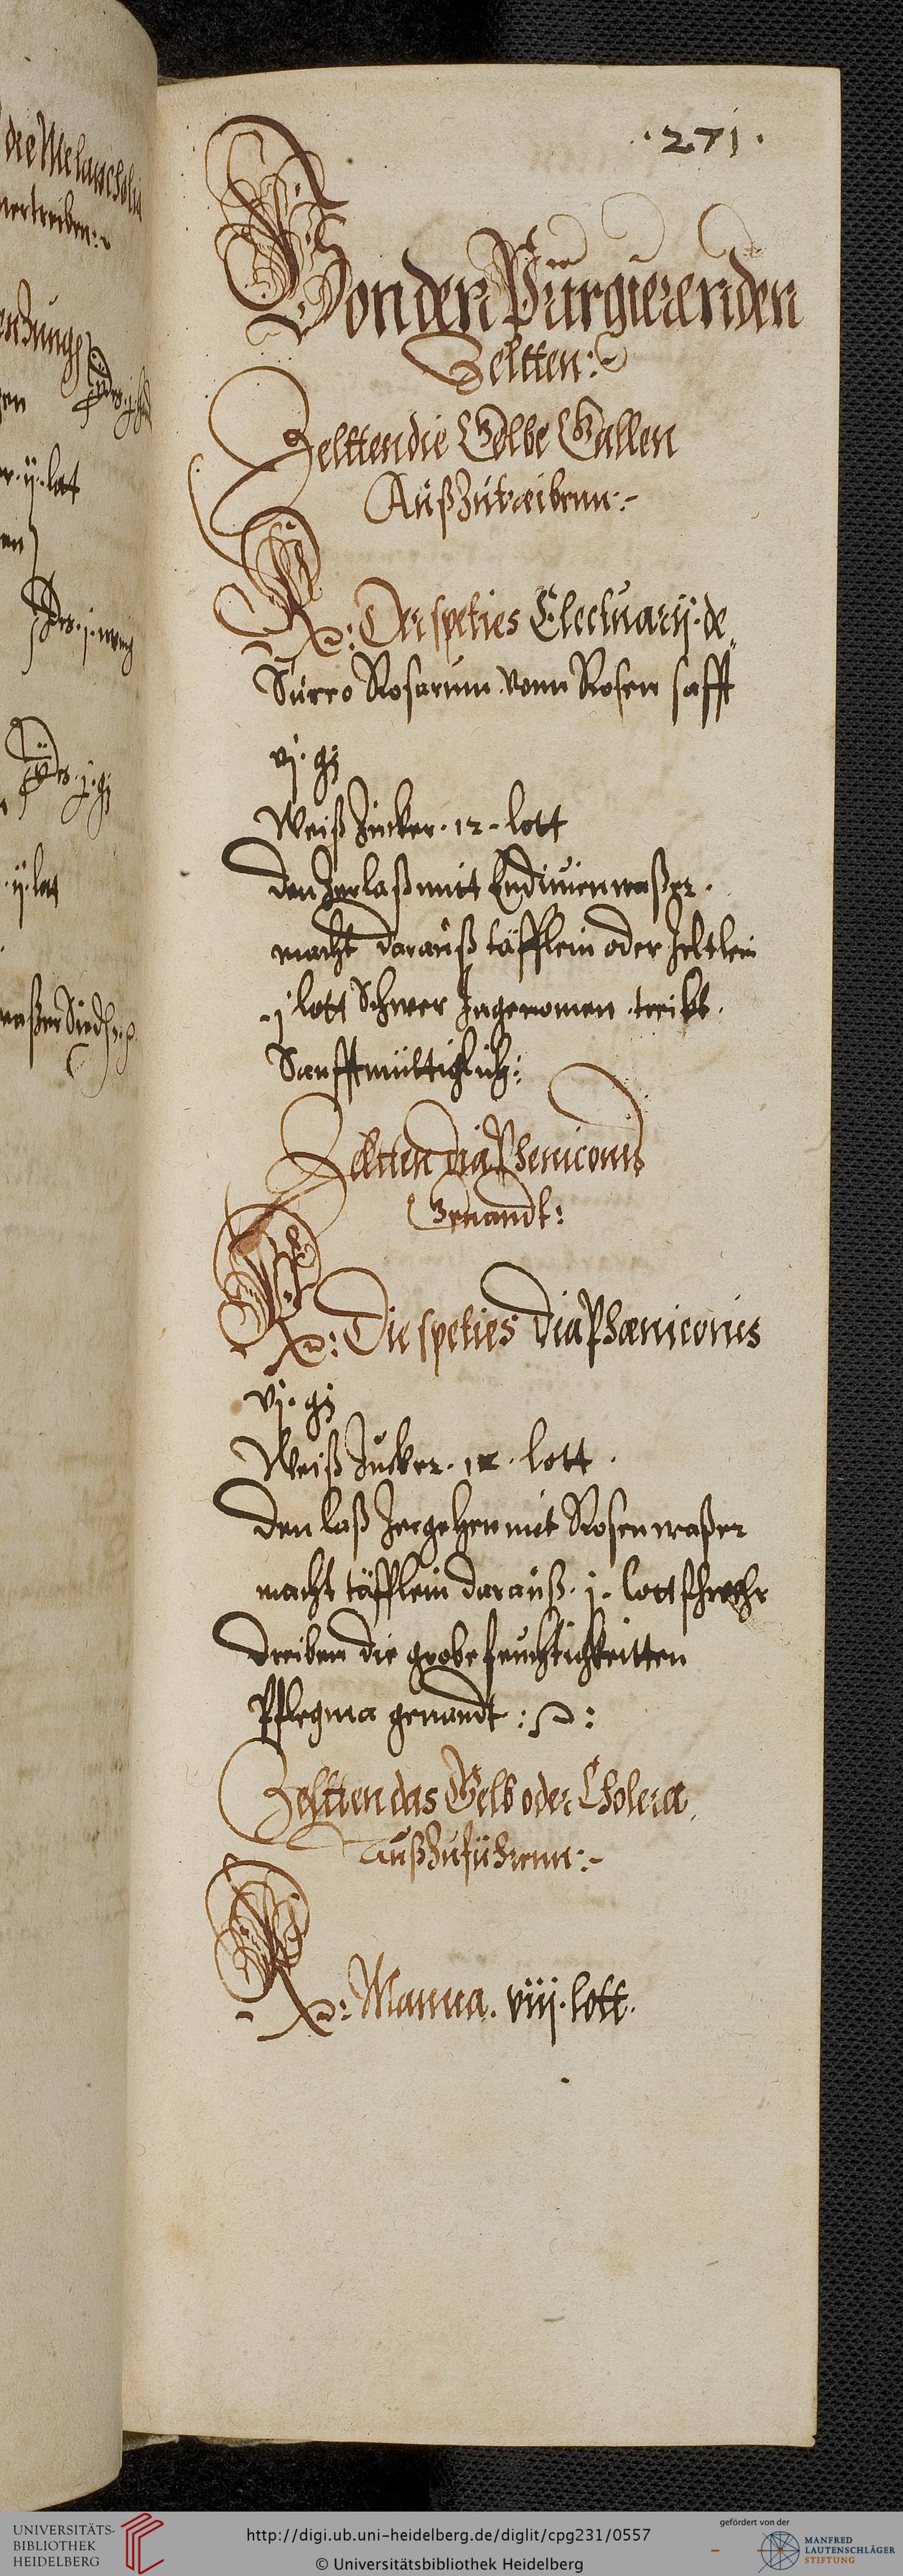 die Melancholi
vertreiben:~
.271.
Von den Purgierenden
Zeltten:~
Zeltten die Gelbe Gallen
Außzutreibenn:~
Rx: Der speties Electuarij de
Sucro Rosarum vonn Rosen safft
vj. gȝ
Weiß Zucker. 12. lott
den Zerlaß mitt Endiuien waßer.
macht darauß täfflein oder Zeltlein
.j lott Schwer Ingenomen. treibt.
Sanfftmüttiglich:
Zeltten Diaphenicons
Genandt:
Rx: Die speties Diaphæniconis
vj. gȝ
Weiß Zucker. 12. lott.
den laß Zergehen mit Rosen waßer
macht täfflein darauß. j. lott schwehr
dreiben die grobe feuchtigkeitten
Pflegma genandt:~:
Zeltten das Gelb oder Cholera
Außzuführenn:~
Rx: Manna. viij. lott.
UNIVERSITÄTS-
BIBLIOTHEK
HEIDELBERG
http://digi.ub.uni-heidelberg.de/diglit/cpg231/0557
© Universitätsbibliothek Heidelberg
gefördert von der
MANFRED
LAUTENSCHLÄGER
STIFTUNG